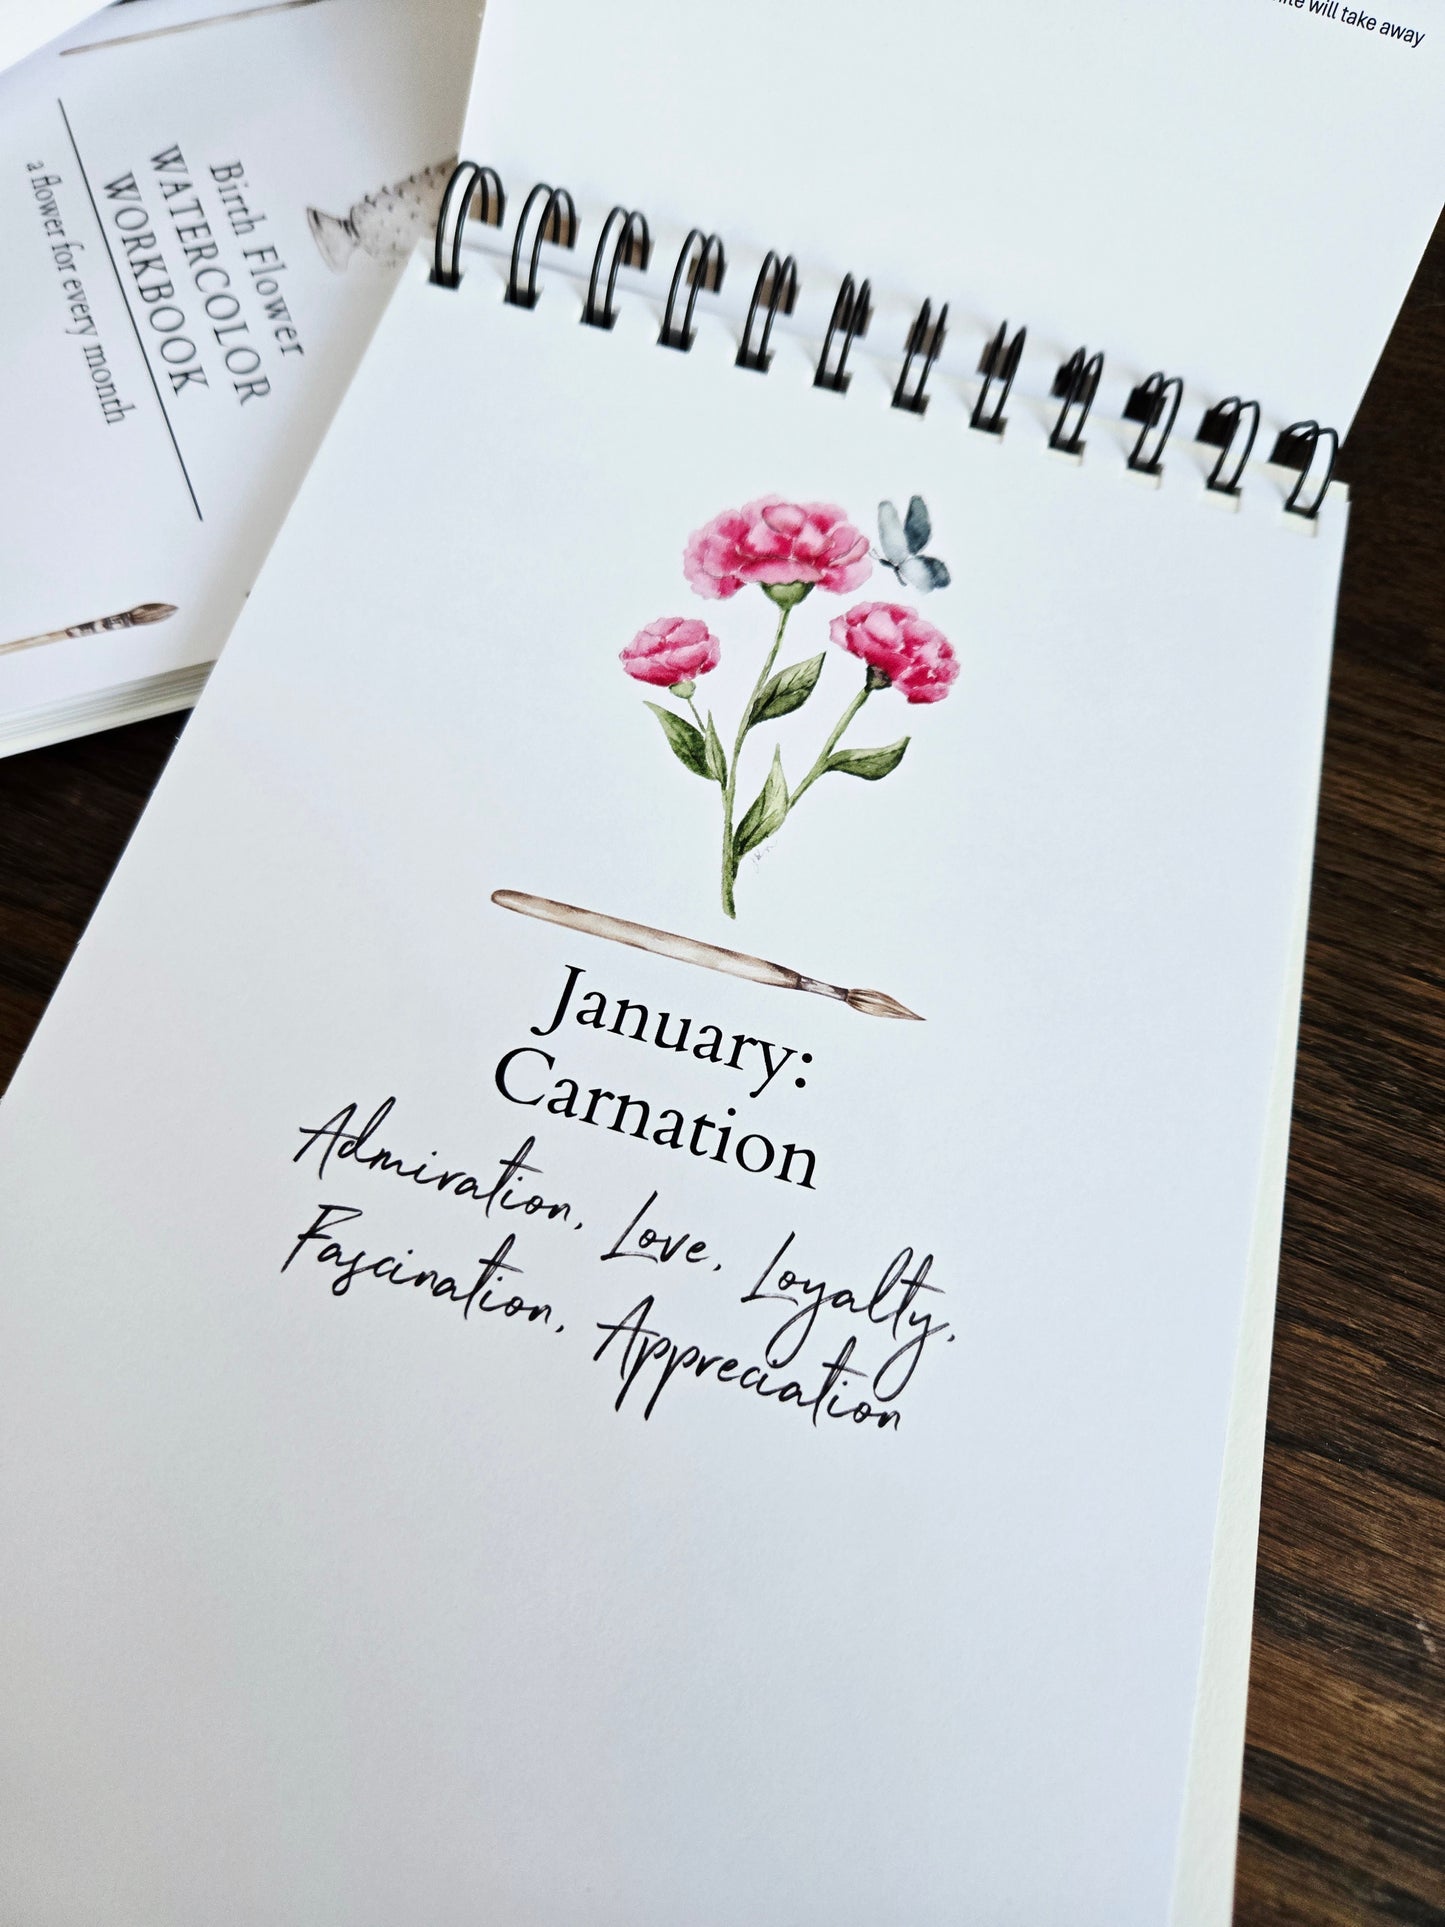 will take away
Birth Flower
WATERCOLOR
WORKBOOK
a flower for every month
January:
Carnation
Admiration, Love, Loyalty,
Fascination, Appreciation